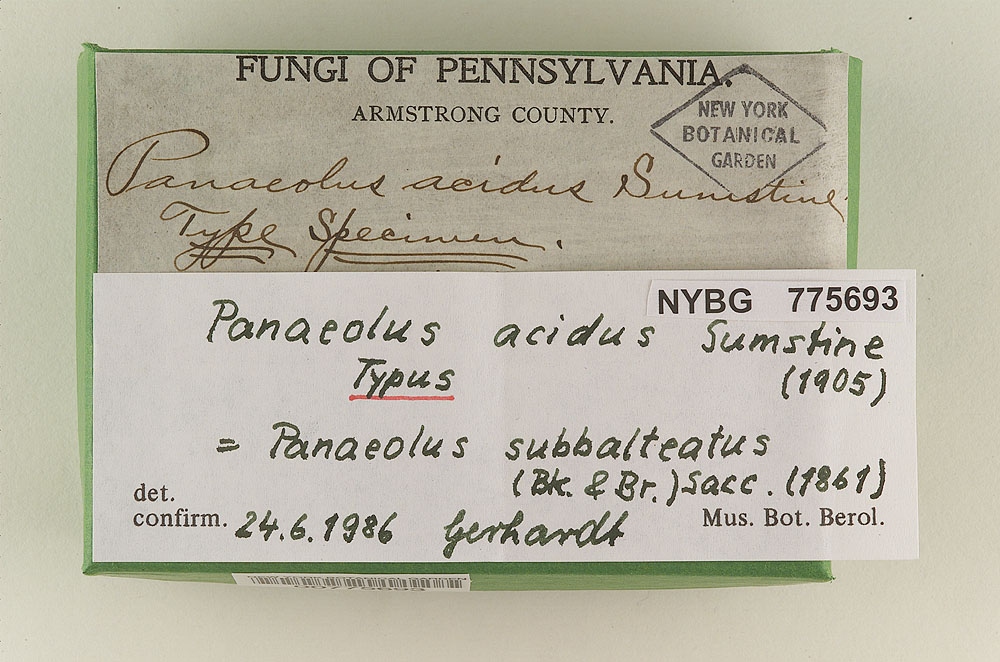 FUNGI OF PENNSYLVANIA.
ARMSTRONG COUNTY.
NEW YORK
BOTANICAL
GARDEN
Panaeolus acidus Sumstine
Type Specimen.
NYBG 775693
Panaeolus acidus Sumstine
Typus (1905)
= Panaeolus subbalteatus
(Bk. & Br.) Sacc. (1861)
det.
confirm. 24.6.1986 Gerhardt Mus. Bot. Berol.